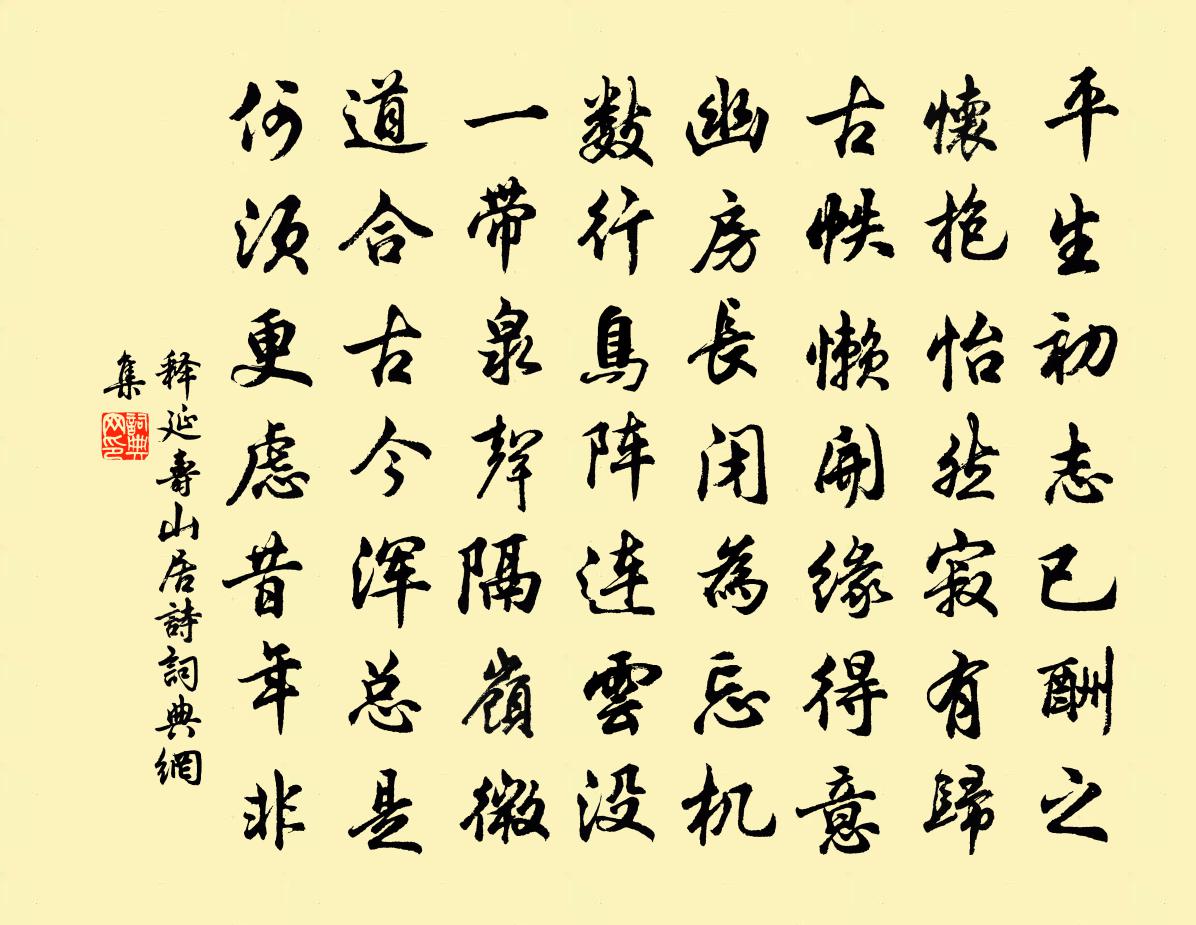 平生初志已酬之
懷抱怡然寂有歸
古帙懶開緣得意
幽房長闭為忘机
数行鳥阵連雲没
一带泉聲隔嶺微
道合古今浑总是
何须更慮昔年非
释延壽山居詩詞典網
集
詞典
网印